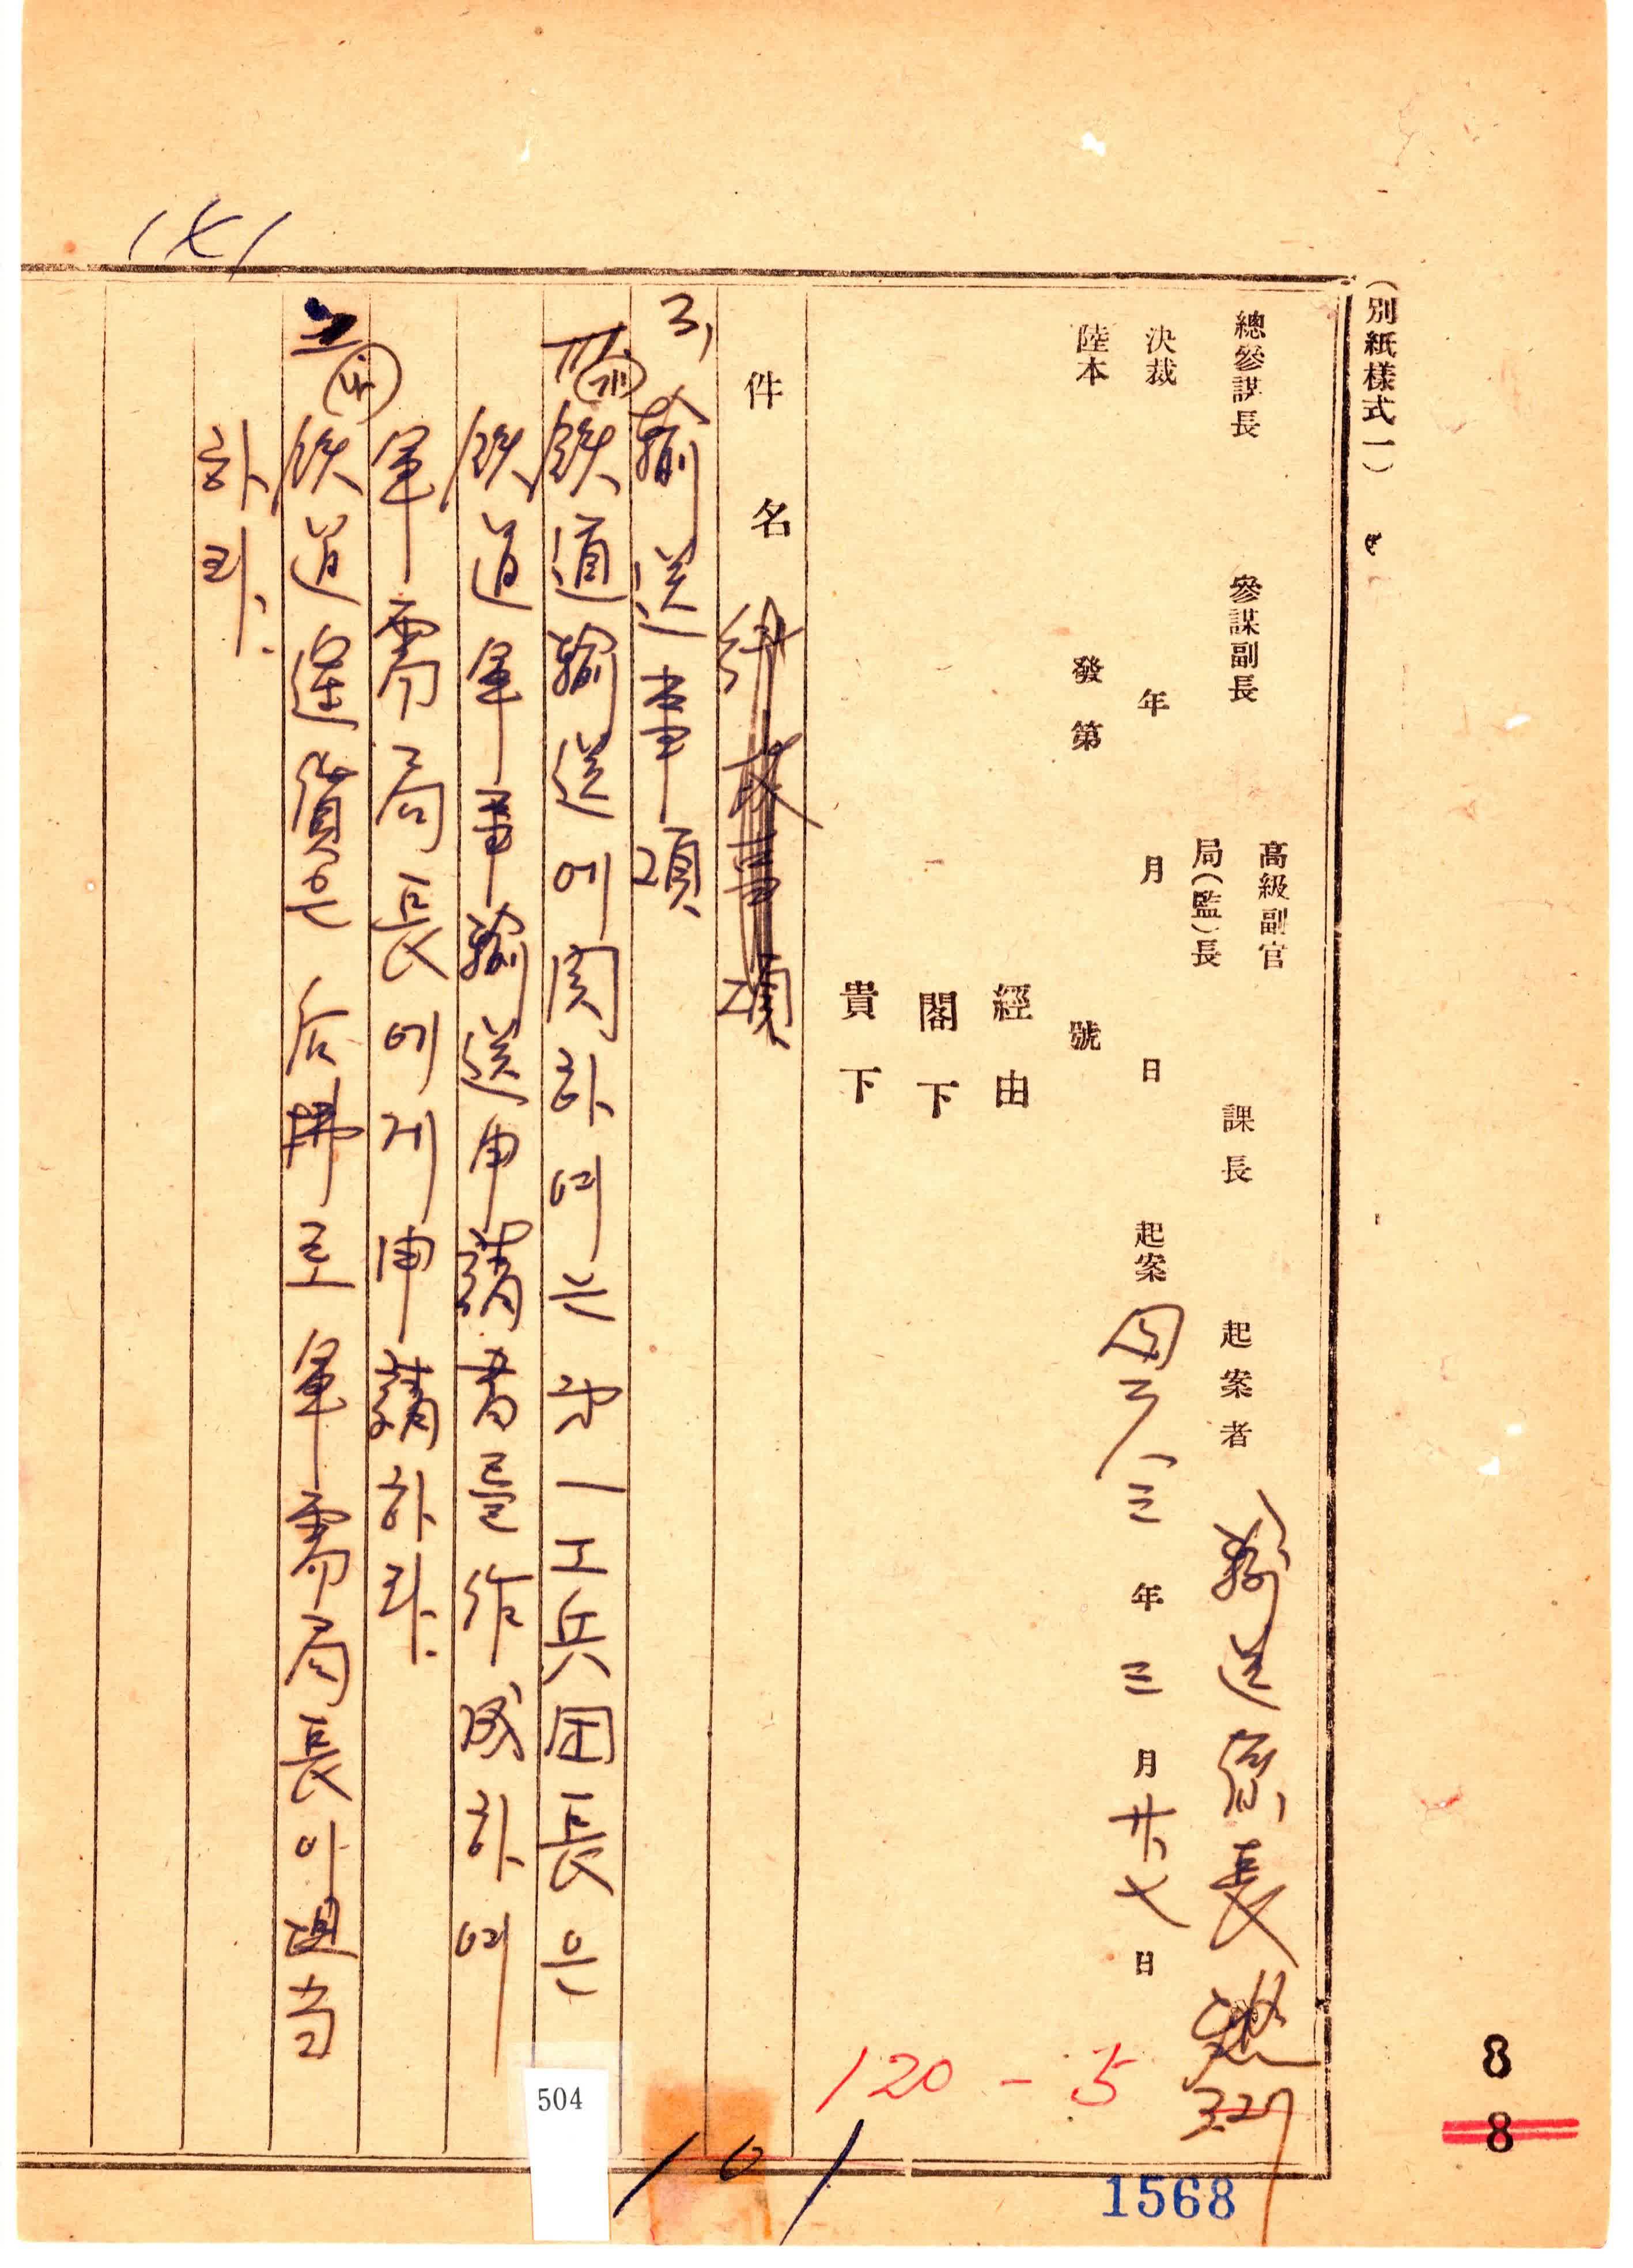 (別紙樣式一)
總參謀長 參謀副長 高級副官 局(監)長 課長 起案者 輸送係長 3.27
決裁 年 月 日 起案 四二八三年三月廿七日
陸本 發第 號
經由
閣下
貴下
件名
3, 輸送事項
鉄道輸送에関하여는 㐧一工兵団長은
鉄道軍事輸送申請書를作成하여
軍需局長에게申請하라.
鉄道運賃은 后拂로 軍需局長이適当
하라.
(七)
120-5
504
1568
8
8